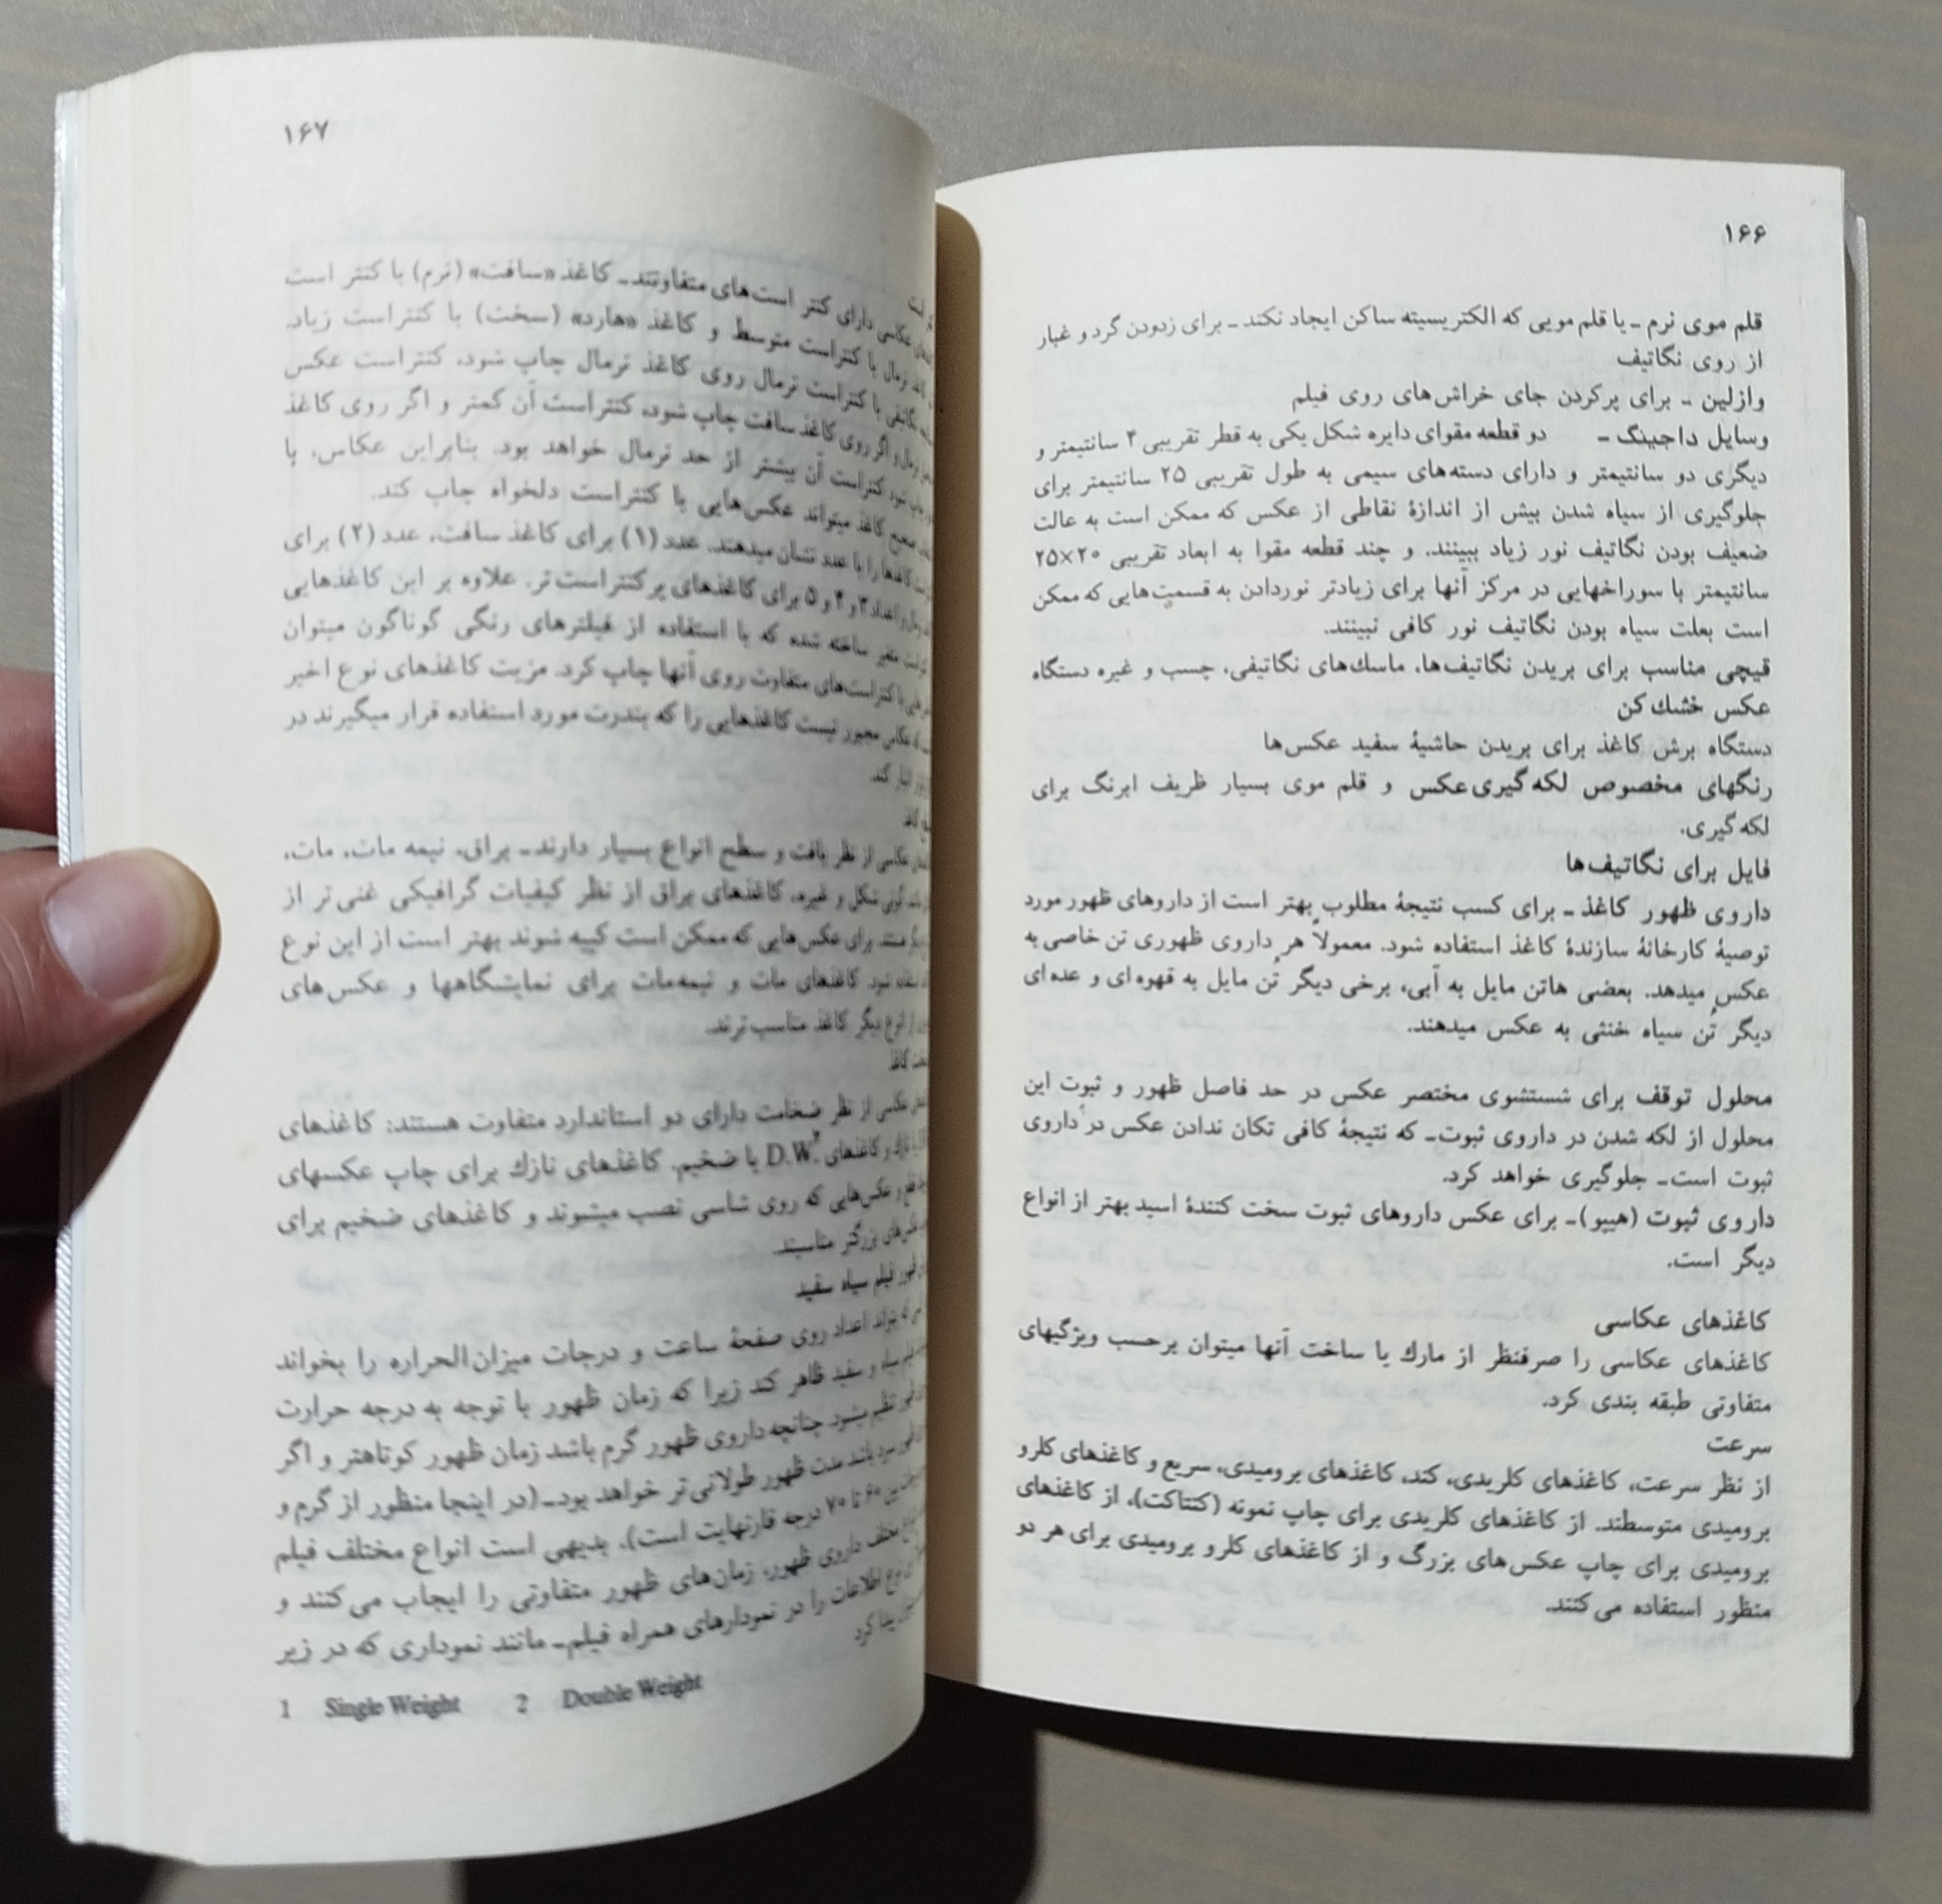 ۱۶۶
قلم موی نرم ـ یا قلم مویی که الکتریسیته ساکن ایجاد نکند ـ برای زدودن گرد و غبار
از روی نگاتیف
وازلین ـ برای پرکردن جای خراش‌های روی فیلم
وسایل داجینگ ـ دو قطعه مقوای دایره شکل یکی به قطر تقریبی ۴ سانتیمتر و
دیگری دو سانتیمتر و دارای دسته‌های سیمی به طول تقریبی ۲۵ سانتیمتر برای
جلوگیری از سیاه شدن بیش از اندازهٔ نقاطی از عکس که ممکن است به عالت
ضعیف بودن نگاتیف نور زیاد ببینند. و چند قطعه مقوا به ابعاد تقریبی ۲۰×۲۵
سانتیمتر با سوراخهایی در مرکز آنها برای زیادتر نوردادن به قسمت‌هایی که ممکن
است بعلت سیاه بودن نگاتیف نور کافی نبینند.
قیچی مناسب برای بریدن نگاتیف‌ها، ماسك‌های نگاتیفی، چسب و غیره دستگاه
عکس خشك کن
دستگاه برش کاغذ برای بریدن حاشیهٔ سفید عکس‌ها
رنگهای مخصوص لکه گیری عکس و قلم موی بسیار ظریف ابرنگ برای
لکه گیری.
فایل برای نگاتیف‌ها
داروی ظهور کاغذ ـ برای کسب نتیجهٔ مطلوب بهتر است از داروهای ظهور مورد
توصیهٔ کارخانهٔ سازندهٔ کاغذ استفاده شود. معمولاً هر داروی ظهوری تن خاصی به
عکس میدهد. بعضی هاتن مایل به آبی، برخی دیگر تُن مایل به قهوه ای و عده ای
دیگر تُن سیاه خنثی به عکس میدهند.
محلول توقف برای شستشوی مختصر عکس در حد فاصل ظهور و ثبوت این
محلول از لکه شدن در داروی ثبوت ـ که نتیجهٔ کافی تکان ندادن عکس در داروی
ثبوت است ـ جلوگیری خواهد کرد.
داروی ثبوت (هیپو) ـ برای عکس داروهای ثبوت سخت کنندهٔ اسید بهتر از انواع
دیگر است.
کاغذهای عکاسی
کاغذهای عکاسی را صرفنظر از مارك یا ساخت آنها میتوان برحسب ویژگیهای
متفاوتی طبقه بندی کرد.
سرعت
از نظر سرعت، کاغذهای کلریدی، کند، کاغذهای برومیدی، سریع و کاغذهای کلرو
برومیدی متوسطند. از کاغذهای کلریدی برای چاپ نمونه (کنتاکت)، از کاغذهای
برومیدی برای چاپ عکس‌های بزرگ و از کاغذهای کلرو برومیدی برای هر دو
منظور استفاده می کنند.
۱۶۷
عکاسی دارای کنتر است‌های متفاوتند ـ کاغذ «سافت» (نرم) با کنتر است
نرمال با کنتراست متوسط و کاغذ «هارد» (سخت) با کنتراست زیاد.
نگاتیفی با کنتراست نرمال روی کاغذ نرمال چاپ شود، کنتراست عکس
نرمال و اگر روی کاغذ سافت چاپ شود، کنتراست آن کمتر و اگر روی کاغذ
چاپ شود کنتراست آن بیشتر از حد نرمال خواهد بود. بنابراین عکاس، با
صحیح کاغذ میتواند عکس‌هایی با کنتراست دلخواه چاپ کند.
کاغذها را با عدد نشان میدهند. عدد (۱) برای کاغذ سافت، عدد (۲) برای
نرمال و اعداد ۳ و ۴ و ۵ برای کاغذهای پرکنتراست تر. علاوه بر این کاغذهایی
متغیر ساخته شده که با استفاده از فیلترهای رنگی گوناگون میتوان
با کنتراست‌های متفاوت روی آنها چاپ کرد. مزیت کاغذهای نوع اخیر
عکاس مجبور نیست کاغذهایی را که بندرت مورد استفاده قرار میگیرند در
انبار کند.
کاغذ
عکاسی از نظر بافت و سطح انواع بسیار دارند ـ براق، نیمه مات، مات،
شکل و غیره. کاغذهای براق از نظر کیفیات گرافیکی غنی تر از
هستند. برای عکس‌هایی که ممکن است کپیه شوند بهتر است از این نوع
استفاده شود. کاغذهای مات و نیمه‌مات برای نمایشگاهها و عکس‌های
از انواع دیگر کاغذ مناسب ترند.
کاغذ
عکاسی از نظر ضخامت دارای دو استاندارد متفاوت هستند: کاغذهای
نازك و کاغذهای D.W.۲ یا ضخیم. کاغذهای نازك برای چاپ عکسهای
قطع و عکس‌هایی که روی شاسی نصب میشوند و کاغذهای ضخیم برای
عکس‌های بزرگتر مناسبند.
ظهور فیلم سیاه سفید
بتواند اعداد روی صفحهٔ ساعت و درجات میزان‌الحراره را بخواند
فیلم سیاه و سفید ظاهر کند زیرا که زمان ظهور با توجه به درجه حرارت
ظهور تنظیم میشود. چنانچه داروی ظهور گرم باشد زمان ظهور کوتاهتر و اگر
ظهور سرد باشد مدت ظهور طولانی تر خواهد بود ـ (در اینجا منظور از گرم و
بین ۶۰ تا ۷۰ درجه فارنهایت است). بدیهی است انواع مختلف فیلم
مختلف داروی ظهور، زمان‌های ظهور متفاوتی را ایجاب می کنند و
نوع اطلاعات را در نمودارهای همراه فیلم ـ مانند نموداری که در زیر
پیدا کرد
1 Single Weight 2 Double Weight